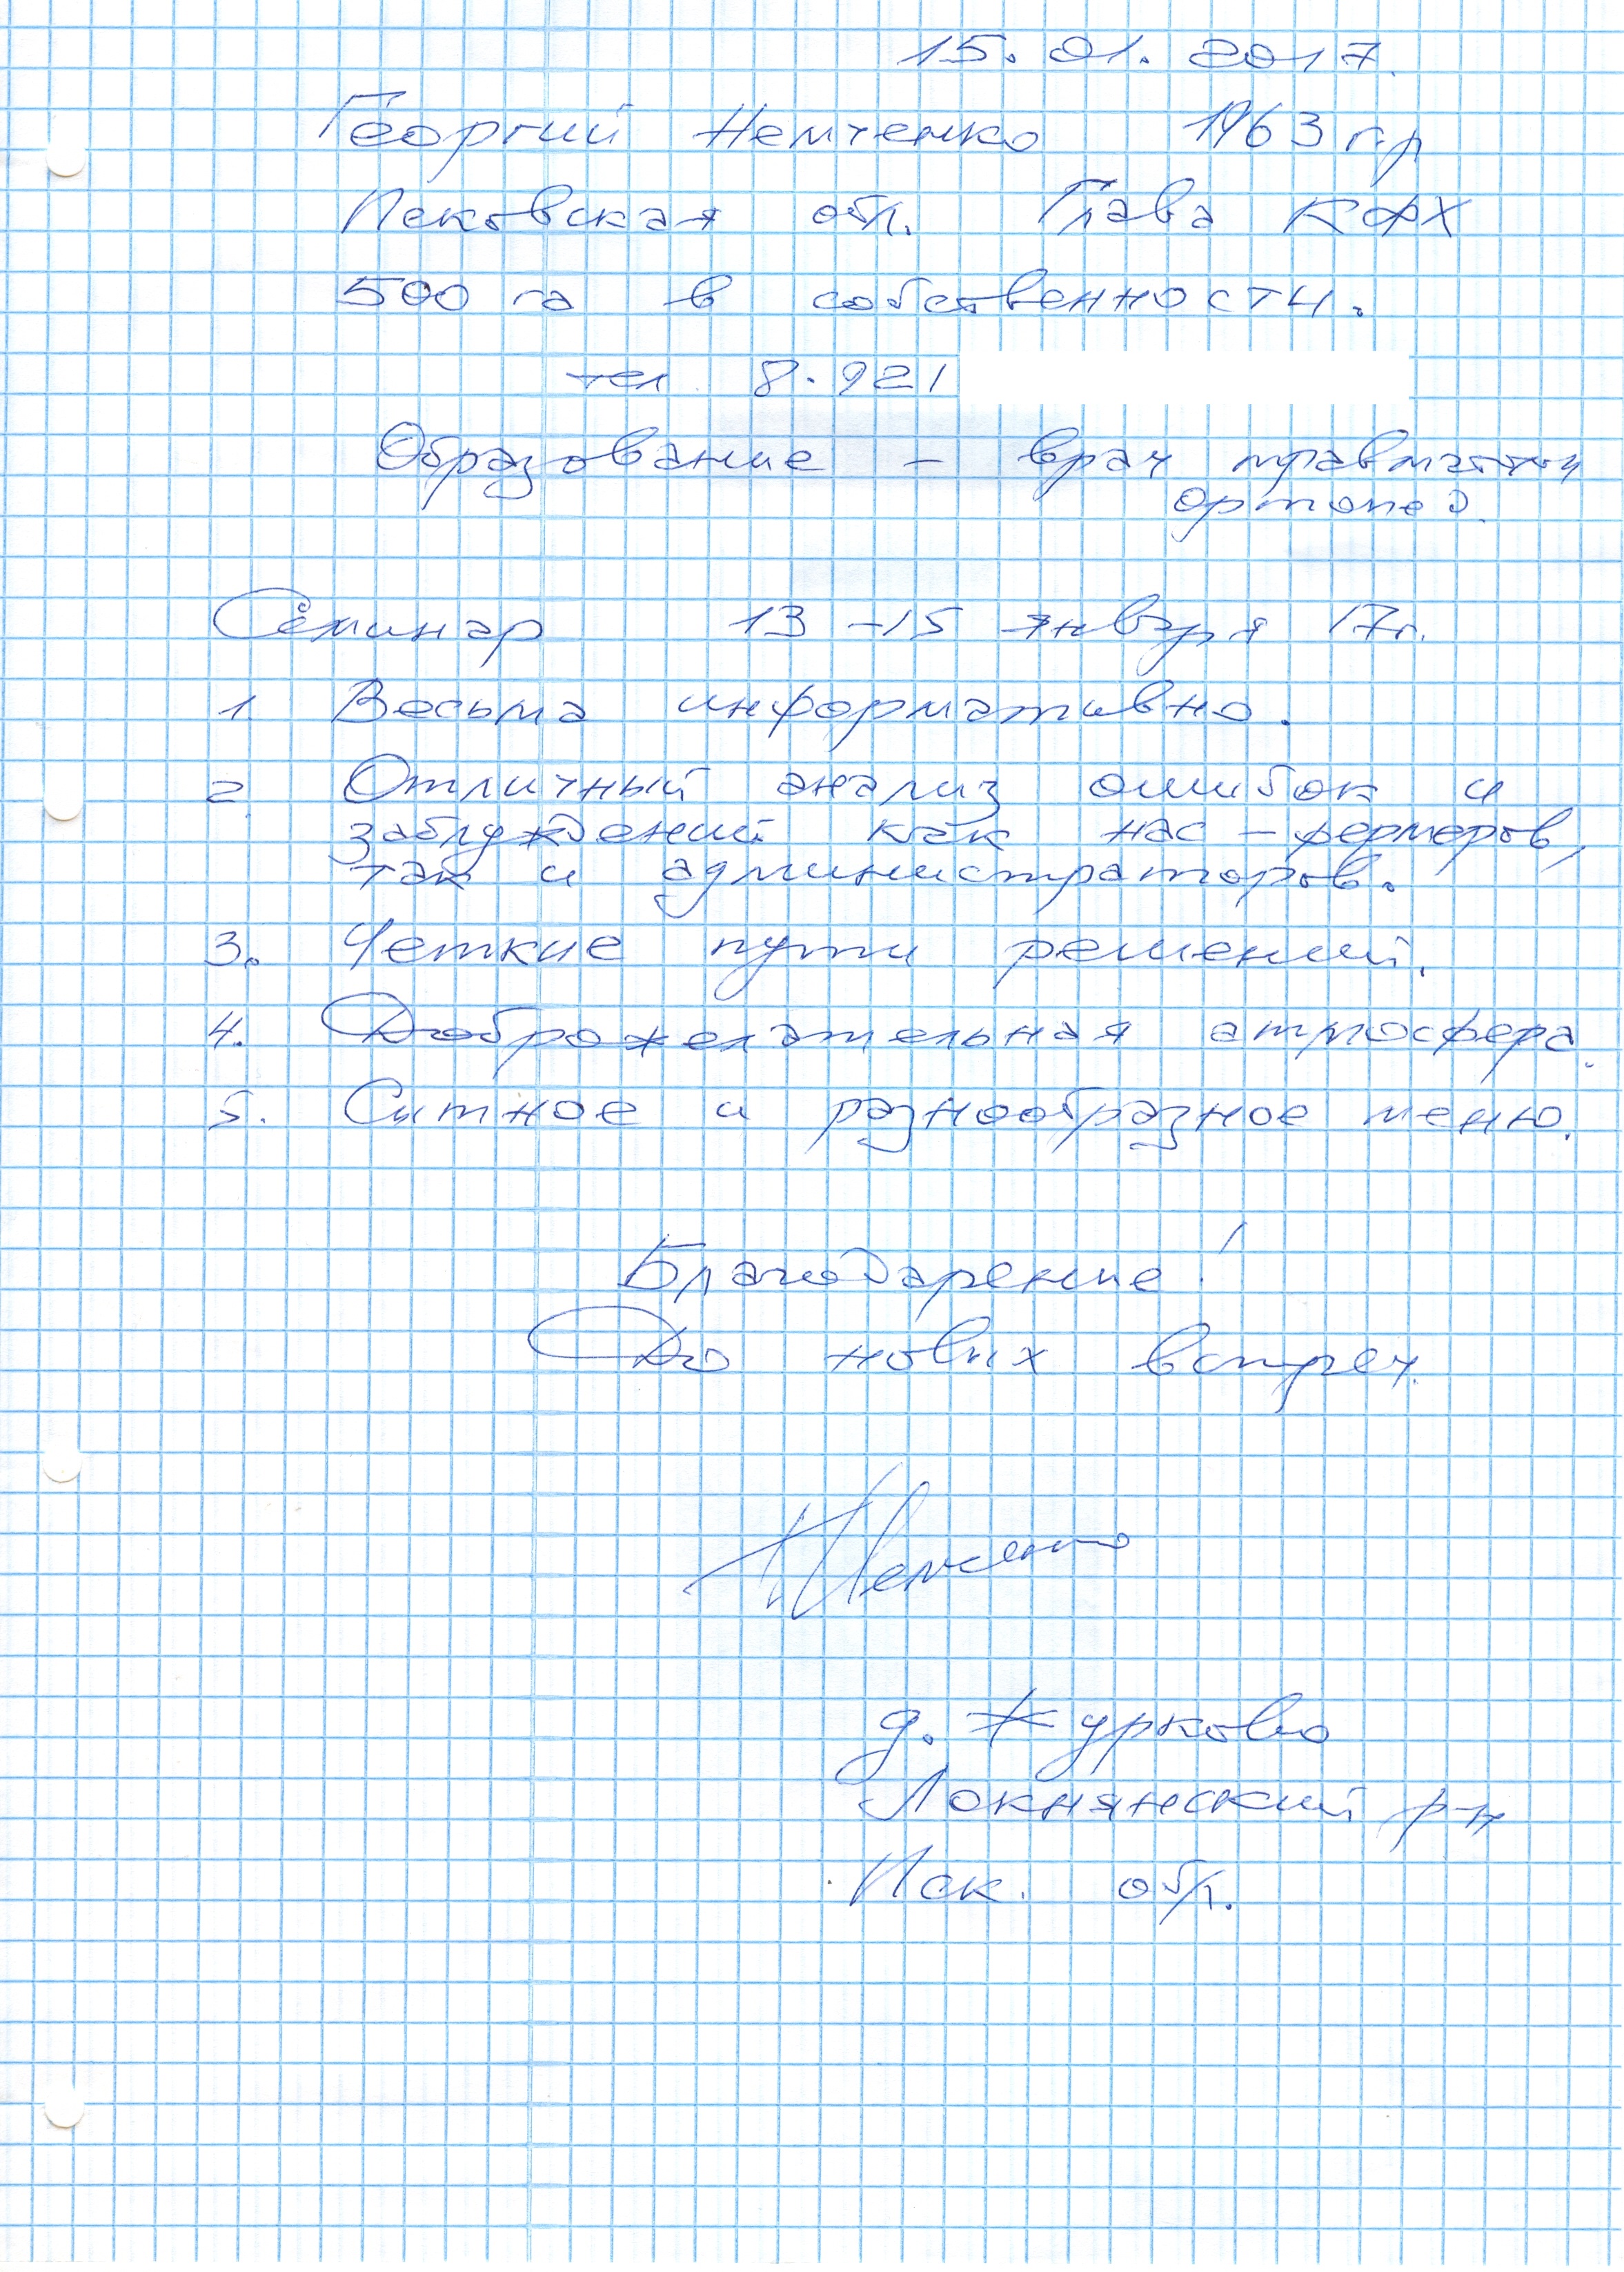 15.01.2017.
Георгий Немченко 1963 г.р
Псковская обл. Глава КФХ
500 га в собственности.
тел. 8.921
Образование – врач
ортопед.
Семинар 13–15 января 17г.
1. Весьма информативно.
2. Отличный анализ ошибок и
заблуждений как нас – фермеров,
так и администраторов.
3. Четкие пути решений.
4. Доброжелательная атмосфера.
5. Сытное и разнообразное меню.
Благодарение!
До новых встреч.
Немченко
д. Журково
Локнянский р-н
Пск. обл.